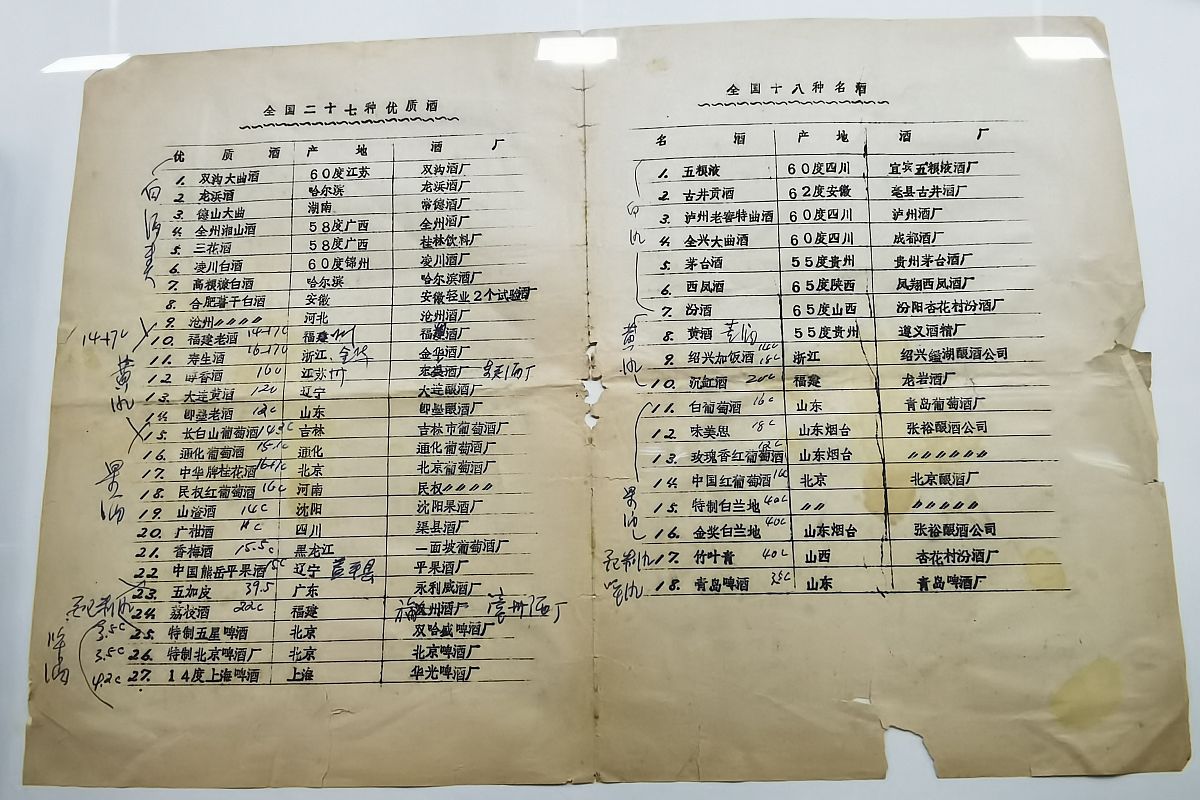 全国二十七种优质酒
优 质 酒 产 地 酒 厂
1. 双沟大曲酒 60度江苏 双沟酒厂
2. 龙浜酒 哈尔滨 龙浜酒厂
3. 德山大曲 湖南 常德酒厂
4. 全州湘山酒 58度广西 全州酒厂
5. 三花酒 58度广西 桂林饮料厂
6. 凌川白酒 60度锦州 凌川酒厂
7. 高粮糠白酒 哈尔滨 哈尔滨酒厂
8. 合肥薯干白酒 安徽 安徽轻业2个试验酒厂
9. 沧州〃〃〃〃 河北 沧州酒厂
10. 福建老酒 14-17c 福建 福建酒厂
11. 寿生酒 16-17c 浙江、金华 金华酒厂
12. 醇香酒 16c 江苏 酒厂
13. 大连黄酒 12c 辽宁 大连酿酒厂
14. 即墨老酒 12c 山东 即墨酿酒厂
15. 长白山葡萄酒 14.3c 吉林 吉林市葡萄酒厂
16. 通化葡萄酒 通化 通化葡萄酒厂
17. 中华牌桂花酒 北京 北京葡萄酒厂
18. 民权红葡萄酒 16c 河南 民权〃〃〃〃
19. 山渣酒 14c 沈阳 沈阳果酒厂
20. 广柑酒 四川 渠县酒厂
21. 香梅酒 15.5c 黑龙江 一面坡葡萄酒厂
22. 中国熊岳平果酒 15c 辽宁 盖平县 平果酒厂
23. 五加皮 39.5 广东 永利威酒厂
24. 荔枝酒 22c 福建 州酒厂
25. 特制五星啤酒 北京 双哈盛啤酒厂
26. 特制北京啤酒厂 北京 北京啤酒厂
27. 14度上海啤酒 上海 华光啤酒厂
白酒类
14-17c
黄酒
果酒
配制酒
啤酒
3.5c
3.5c
4.2c
全国十八种名酒
名 酒 产 地 酒 厂
1. 五粮液 60度四川 宜宾五粮液酒厂
2. 古井贡酒 62度安徽 亳县古井酒厂
3. 泸州老窖特曲酒 60度四川 泸州酒厂
4. 全兴大曲酒 60度四川 成都酒厂
5. 茅台酒 55度贵州 贵州茅台酒厂
6. 西凤酒 65度陕西 凤翔西凤酒厂
7. 汾酒 65度山西 汾阳杏花村汾酒厂
8. 黄酒 55度贵州 遵义酒精厂
9. 绍兴加饭酒 浙江 绍兴鑑湖酿酒公司
10. 沉缸酒 20c 福建 龙岩酒厂
11. 白葡萄酒 16c 山东 青岛葡萄酒厂
12. 味美思 18c 山东烟台 张裕酿酒公司
13. 玫瑰香红葡萄酒 山东烟台 〃〃〃〃〃〃
14. 中国红葡萄酒 16c 北京 北京酿酒厂
15. 特制白兰地 40c 〃〃 〃〃〃〃〃
16. 金奖白兰地 40c 山东烟台 张裕酿酒公司
17. 竹叶青 40c 山西 杏花村汾酒厂
18. 青岛啤酒 3.5c 山东 青岛啤酒厂
白酒
黄酒
果酒
配制酒
啤酒